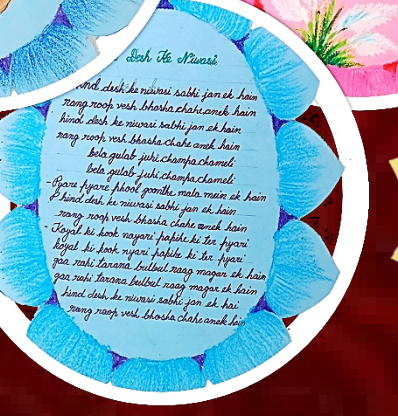 Desh Ke Niwasi
hind desh ke niwasi sabhi jan ek hain
rang roop vesh bhosha chahe anek hain
hind desh ke niwasi sabhi jan ek hain
rang roop vesh bhosha chahe anek hain
bela gulab juhi champa chameli
bela gulab juhi champa chameli
- Pyare pyare phool goonthe mala mein ek hain
hind desh ke niwasi sabhi jan ek hain
rang roop vesh bhosha chahe anek hain
- Koyal ki kook nayari papihe ki ter pyari
koyal ki kook nyari papihe ki ter pyari
gaa rahi tarana bulbul raag magar ek hain
gaa rahi tarana bulbul raag magar ek hain
hind desh ke niwasi sabhi jan ek hai
rang roop vesh bhosha chahe anek hain